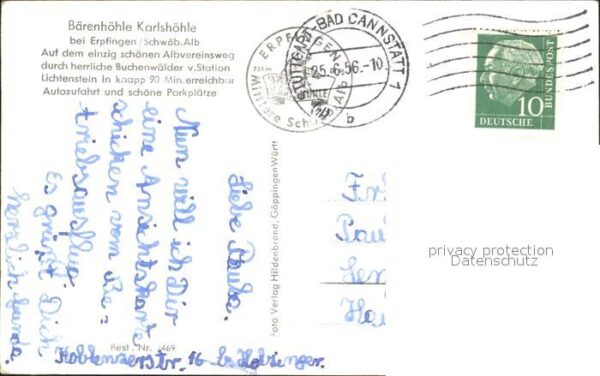 Bärenhöhle Karlshöhle
bei Erpfingen/Schwäb.Alb
Auf dem einzig schönen Albvereinsweg
durch herrliche Buchenwälder v.Station
Lichtenstein in knapp 90 Min.erreichbar
Autozufahrt und schöne Parkplätze
ERPFINGEN
Mittlere Schwäb. Alb
STUTTGART-BAD CANNSTATT 1
25.6.56.-10
b
10
DEUTSCHE
BUNDESPOST
Liebe Paula.
Nun will ich Dir
eine Ansichtskarte
schicken vom Be"
triebsausflug
Es grüßt Dich
herzlich
Koblenzerstr. 16 b.
Foto Verlag Hildenbrand, Göppingen Württ
Best. Nr. 469
privacy protection
Datenschutz